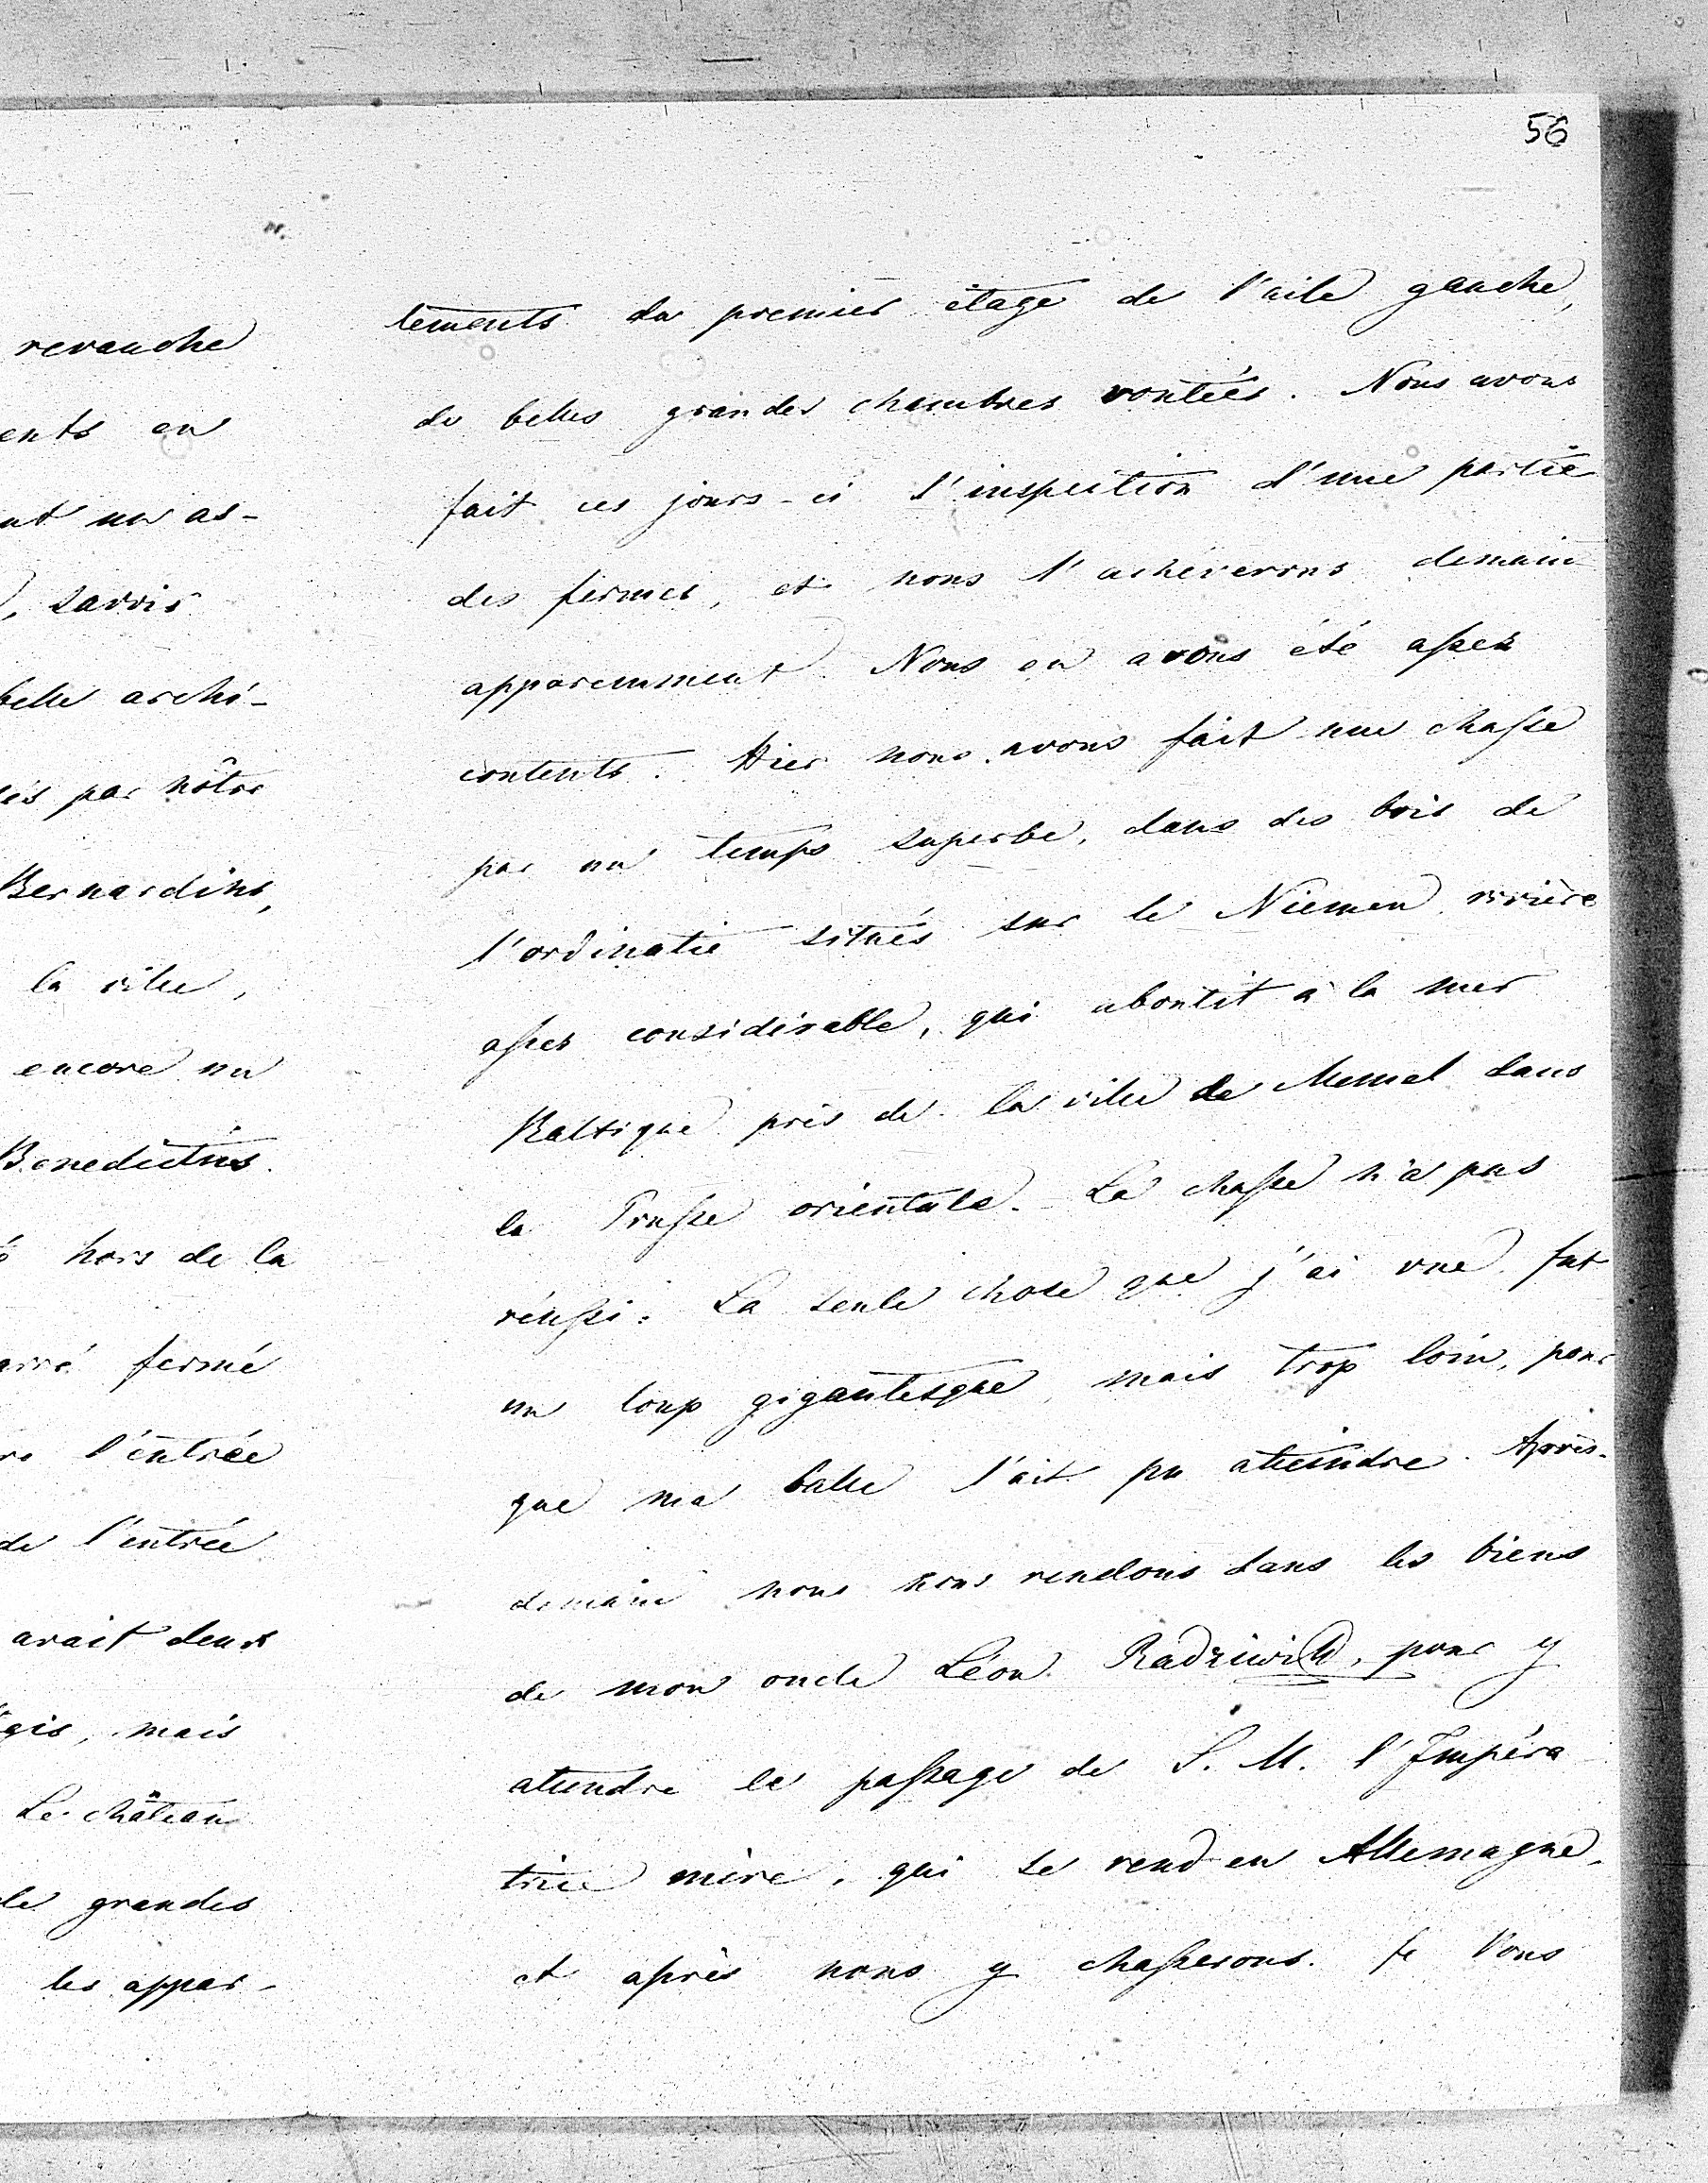 56
revanche
ents en
nt un as-
, savoir
belle archi-
sés par nôtre
Bernardins,
la ville,
encore un
Benedictins.
hors de la
arré fermé
l'entrée
de l'entrée
avait deux
gis, mais
Le château
de grandes
les appar-
tements du premier étage de l'aile gauche,
de belles grandes chambres voutées. Nous avons
fait ces jours-ci l'inspection d'une partie
des fermes, et nous l'achéverons demain
apparemment. Nous en avons été assez
contents. Hier nous avons fait une chasse
par un temps superbe, dans des bois de
l'ordinatie situés sur le Niemen, rivière
assez considérable, qui aboutit à la mer
Baltique près de la ville de Memel dans
la Prusse orientale. La chasse n'a pas
réussi. La seule chose que j'ai vue, fut
un loup gigantesque, mais trop loin, pour
que ma balle l'ait pu atteindre. Après-
demain nous nous rendons dans les biens
de mon oncle Léon Radziwill, pour y
attendre le passage de S. M. l'Impéra
trice mère, qui se rend en Allemagne,
et après nous y chasserons. Je Vous